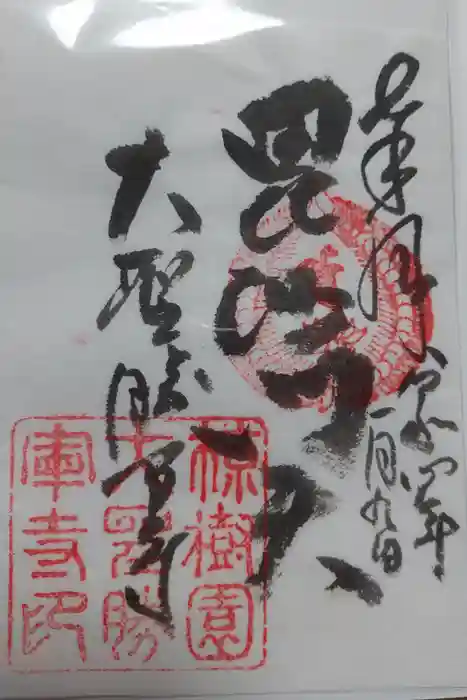 奉拝
令和四年
一月九日
毘沙門天
大聖勝軍寺
椋樹園
大聖勝
軍寺印